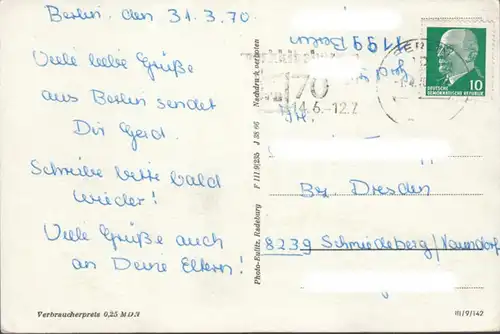 Berlin, den 31.3.70
Viele liebe Grüße
aus Berlin sendet
Dir Gerd.
Schreibe bitte bald
wieder!
Viele Grüße auch
an Deine Eltern!
Verbraucherpreis 0,25 MDN
Photo-Eulitz, Radeburg F III 9/235 J 38 66 Nachdruck verboten
1199 Berlin
70
14.6.-12.7
10
DEUTSCHE
DEMOKRATISCHE REPUBLIK
Bez Dresden
8239 Schmiedeberg/Naundorf
III/9/142